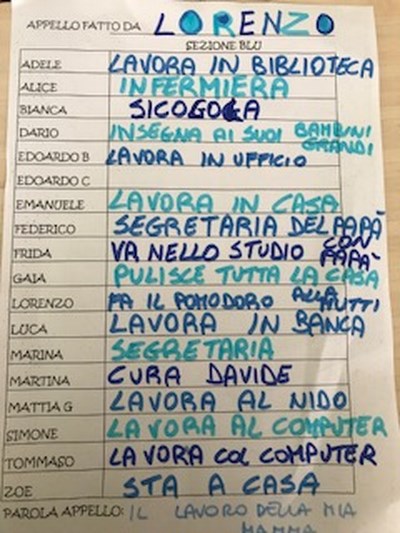 APPELLO FATTO DA LORENZO
SEZIONE BLU
ADELE LAVORA IN BIBLIOTECA
ALICE INFERMIERA
BIANCA SICOGOLA
DARIO INSEGNA AI SUOI BAMBINI GRANDI
EDOARDO B LAVORA IN UFFICIO
EDOARDO C
EMANUELE LAVORA IN CASA
FEDERICO SEGRETARIA DEL PAPÀ
FRIDA VA NELLO STUDIO CON PAPÀ
GAIA PULISCE TUTTA LA CASA
LORENZO FA IL POMODORO ALLA TUTTI
LUCA LAVORA IN BANCA
MARINA SEGRETARIA
MARTINA CURA DAVIDE
MATTIA G LAVORA AL NIDO
SIMONE LAVORA AL COMPUTER
TOMMASO LAVORA COL COMPUTER
ZOE STA A CASA
PAROLA APPELLO: IL LAVORO DELLA MIA
MAMMA